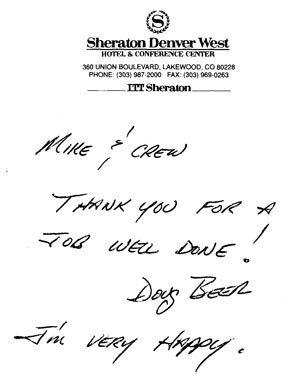 S
Sheraton Denver West
HOTEL & CONFERENCE CENTER
360 UNION BOULEVARD, LAKEWOOD, CO 80228
PHONE: (303) 987-2000 FAX: (303) 969-0263
ITT Sheraton
MIKE & CREW
THANK YOU FOR A
JOB WELL DONE!
Doug BEER
I'm VERY HAPPY.